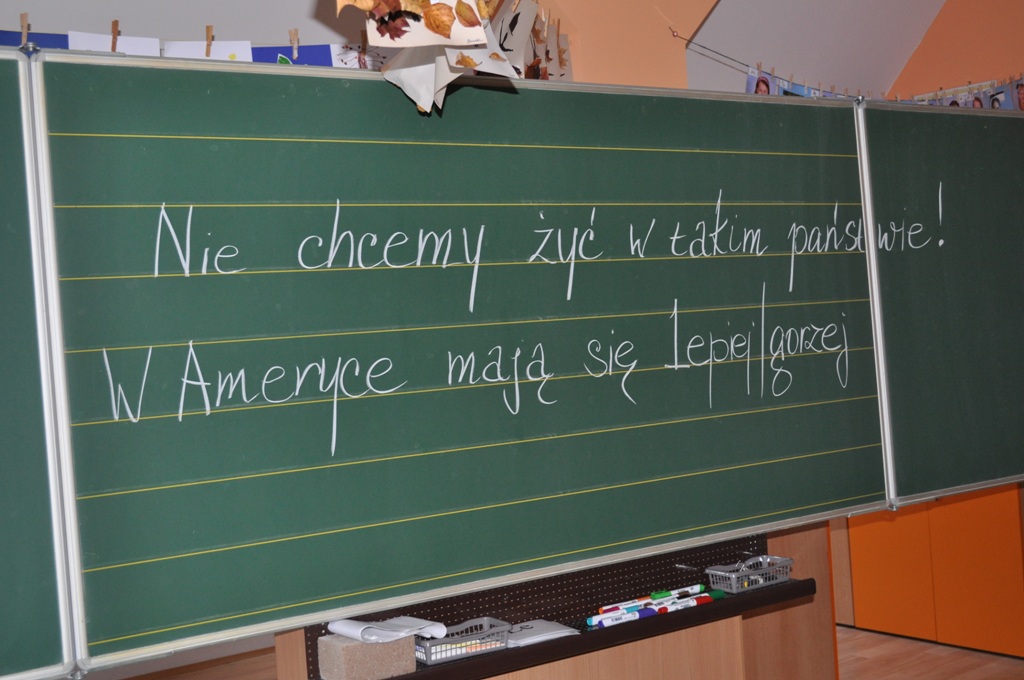 Nie chcemy żyć w takim państwie!
W Ameryce mają się lepiej|gorzej